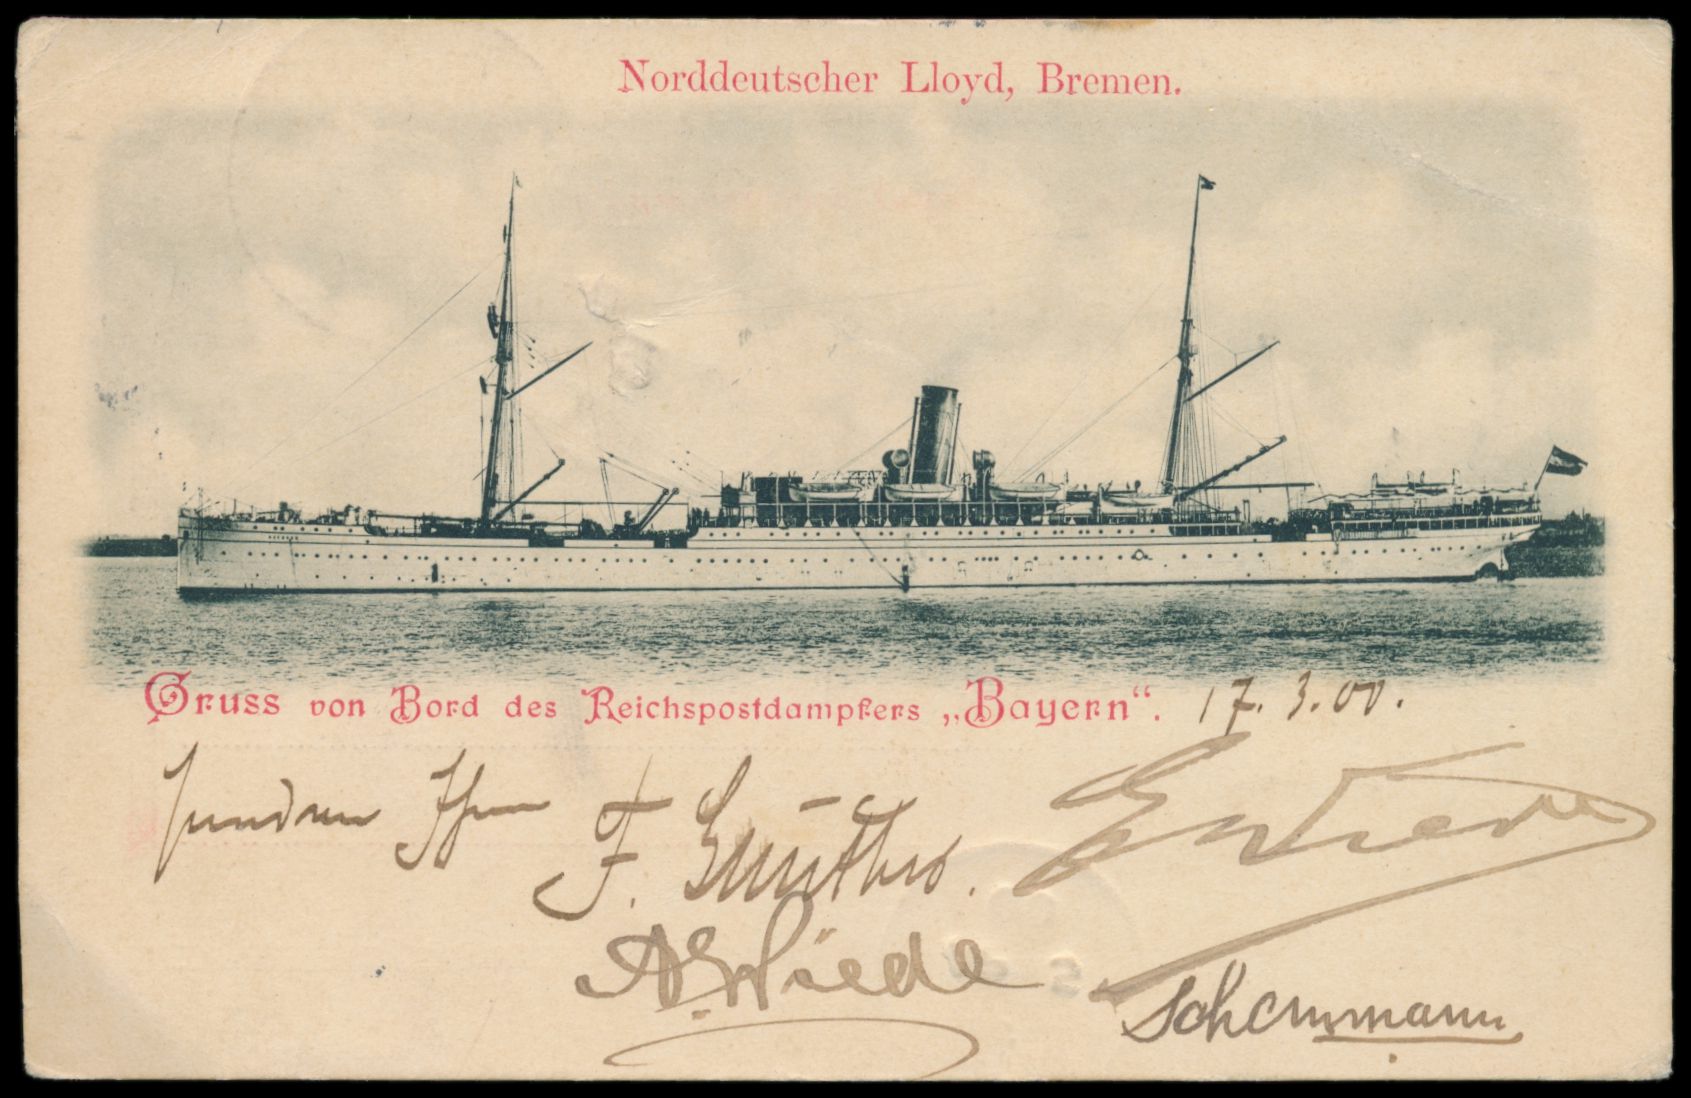 Norddeutscher Lloyd, Bremen.
Gruss von Bord des Reichspostdampfers „Bayern“. 17.3.00.
Ihnen F. Günther.
Wiede
Schemmann